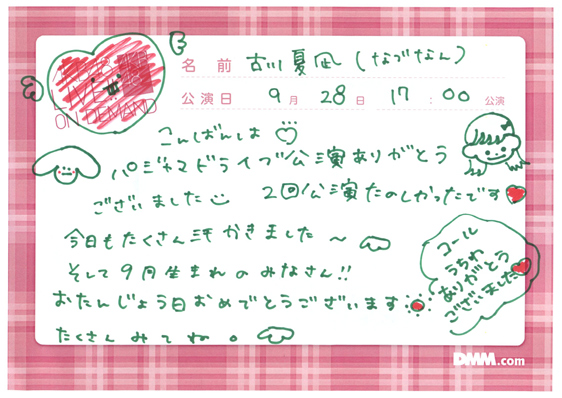 AKB48
LIVE!!
ON DEMAND
名前 古川夏凪 (なづなん)
公演日 9月 28日 17:00公演
こんばんは
パジャマドライブ公演ありがとう
ございました
2回公演たのしかったです
今日もたくさん汗かきました 〜
そして9月生まれのみなさん!!
おたんじょう日おめでとうございます
たくさんみてね。
コール
うちわ
ありがとう
ございました
DMM.com